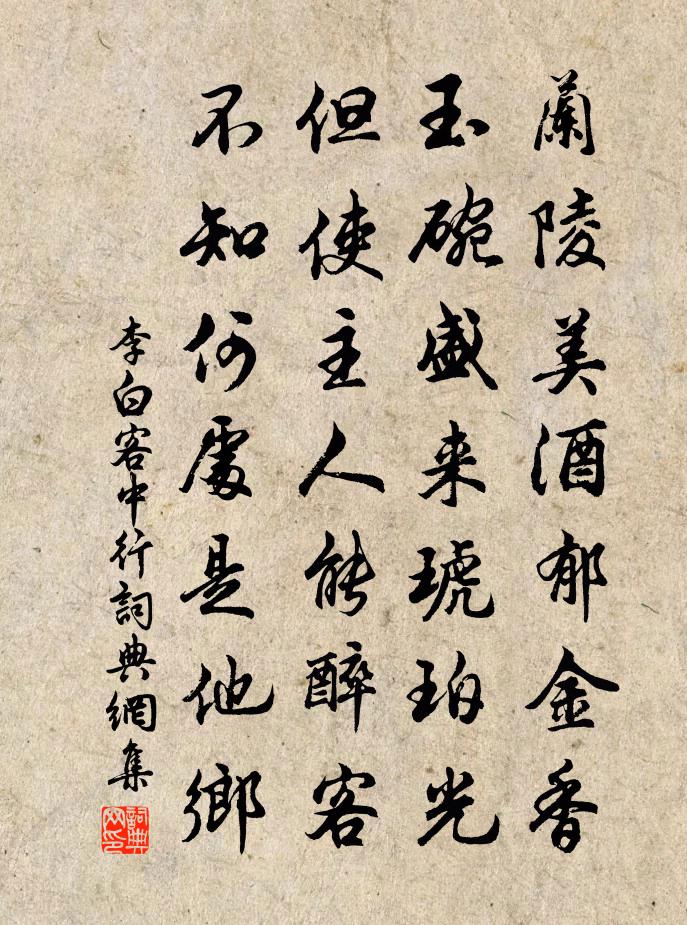 蘭陵美酒郁金香
玉碗盛来琥珀光
但使主人能醉客
不知何處是他鄉
李白客中行詞典網集
詞典网印